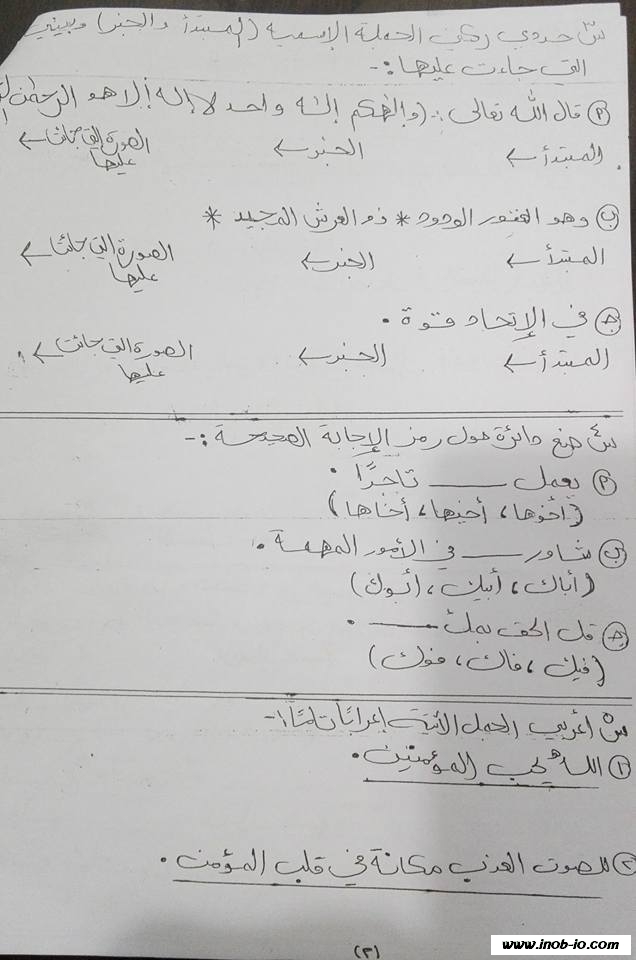 س٣ حددي ركني الجملة الإسمية (المبتدأ والخبر) وبيني
التي جاءت عليها :-
أ قال الله تعالى :- (وإلهكم إله واحد لا إله إلا هو الرحمن
المبتدأ← الخبر← الصورة التي جائت عليها←
ب وهو الغفور الودود * ذو العرش المجيد *
المبتدأ← الخبر← الصورة التي جائت عليها←
ج في الإتحاد قوة .
المبتدأ← الخبر← الصورة التي جائت عليها←
س٤ ضع دائرة حول رمز الإجابة الصحيحة :-
أ يعمل ــــ تاجرًا .
(أخوها ، أخيها ، أخاها)
ب شاور ــــ في الأمور المهمة .
(أباك ، أبيك ، أبوك)
ج قل الحق بملء ــــ .
(فيك ، فاك ، فوك)
س٥ أعربي الجمل الأتية إعرابًا تامًا :-
١ الله يحب المؤمنين .
٢ للصوت العذب مكانة في قلب المؤمن .
(٣)
www.inob-jo.com